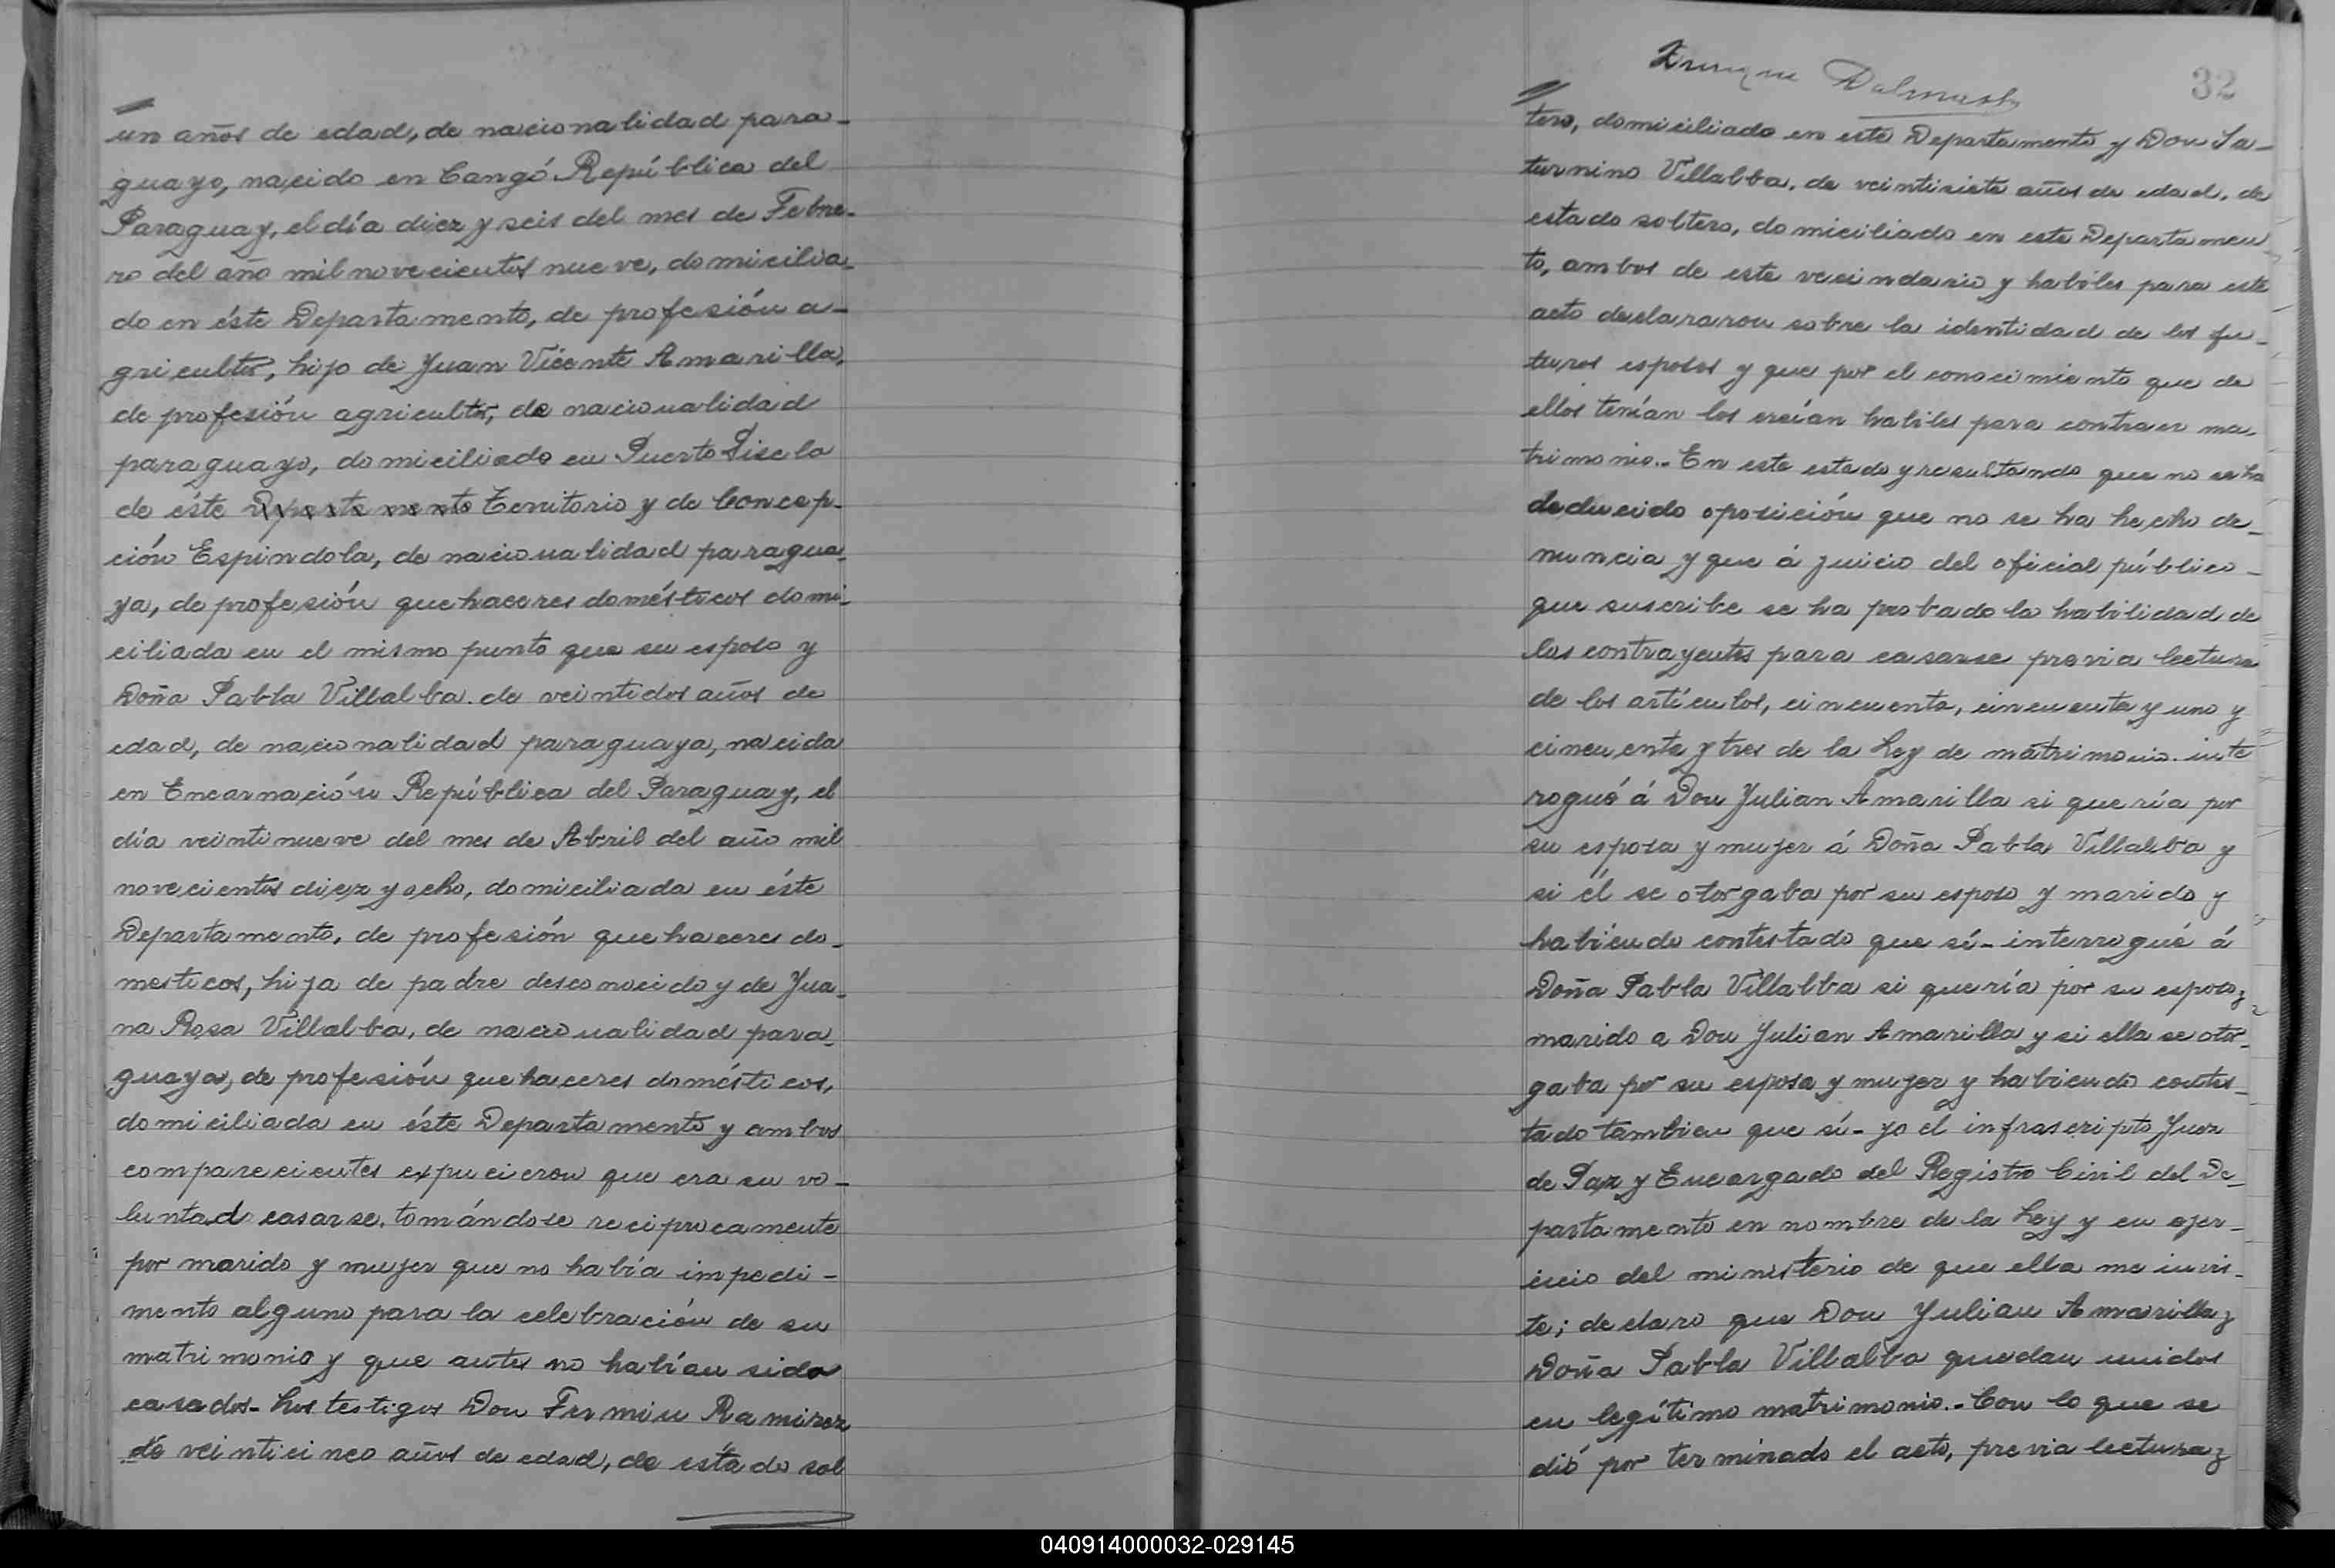 un años de edad, de nacionalidad para-
guayo, nacido en Cangó República del
Paraguay, el día diez y seis del mes de Febre-
ro del año mil novecientos nueve, domicilia-
do en éste Departamento, de profesión a-
gricultor, hijo de Juan Vicente Amarilla,
de profesión agricultor, de nacionalidad
paraguayo, domiciliado en Puerto
de éste Departamento Territorio y de Concep-
ción Espindola, de nacionalidad paragua-
ya, de profesión quehaceres domésticos domi-
ciliada en el mismo punto que su esposo y
Doña Pabla Villalba. de veintidos años de
edad, de nacionalidad paraguaya, nacida
en Encarnación República del Paraguay, el
día veintinueve del mes de Abril del año mil
novecientos diez y ocho, domiciliada en éste
Departamento, de profesión quehaceres do-
mesticos, hija de padre desconocido y de Jua-
na Rosa Villalba, de nacionalidad para-
guaya, de profesión quehaceres domésticos,
domiciliada en éste Departamento y ambos
comparecientes expucieron que era su vo-
luntad casarse, tomándose reciprocamente
por marido y mujer que no había impedi-
mento alguno para la celebración de su
matrimonio y que antes no habían sido
casados- Los testigos Don Fermin Ramirez
de veinticinco años de edad, de estado sol
32
tero, domiciliado en este Departamento y Don Sa-
turnino Villalba, de veintisiete años de edad, de
estado soltero, domiciliado en este Departamen
to, ambos de este vecindario y habiles para este
acto declararon sobre la identidad de los fu-
turos esposos y que por el conocimiento que de
ellos tenían los creían habiles para contraer ma-
trimonio.- En este estado y resultando que no se ha
deducido oposición que no se ha hecho de-
nuncia y que á juicio del oficial público-
que suscribe se ha probado la habilidad de
los contrayentes para casarse previa lectura
de los artículos, cincuenta, cincuenta y uno y
cincuenta y tres de la Ley de matrimonio. inte
rogué á Don Julian Amarilla si quería por
su esposa y mujer á Doña Pabla Villalba y
si él se otorgaba por su esposo y marido y
habiendo contestado que sí- interrogué á
Doña Pabla Villalba si quería por su esposo y
marido a Don Julian Amarilla y si ella se otor-
gaba por su esposa y mujer y habiendo contes-
tado tambien que sí- yo él infrascripto Juez
de Paz y Encargado del Registro Civil del De-
partamento en nombre de la Ley y en ejer-
cicio del ministerio de que ella me invis-
te; declaro que Don Julian Amarilla y
Doña Pabla Villalba quedan unidos
en legítimo matrimonio.- Con lo que se
dió por terminado el acto, previa lectura y
040914000032-029145